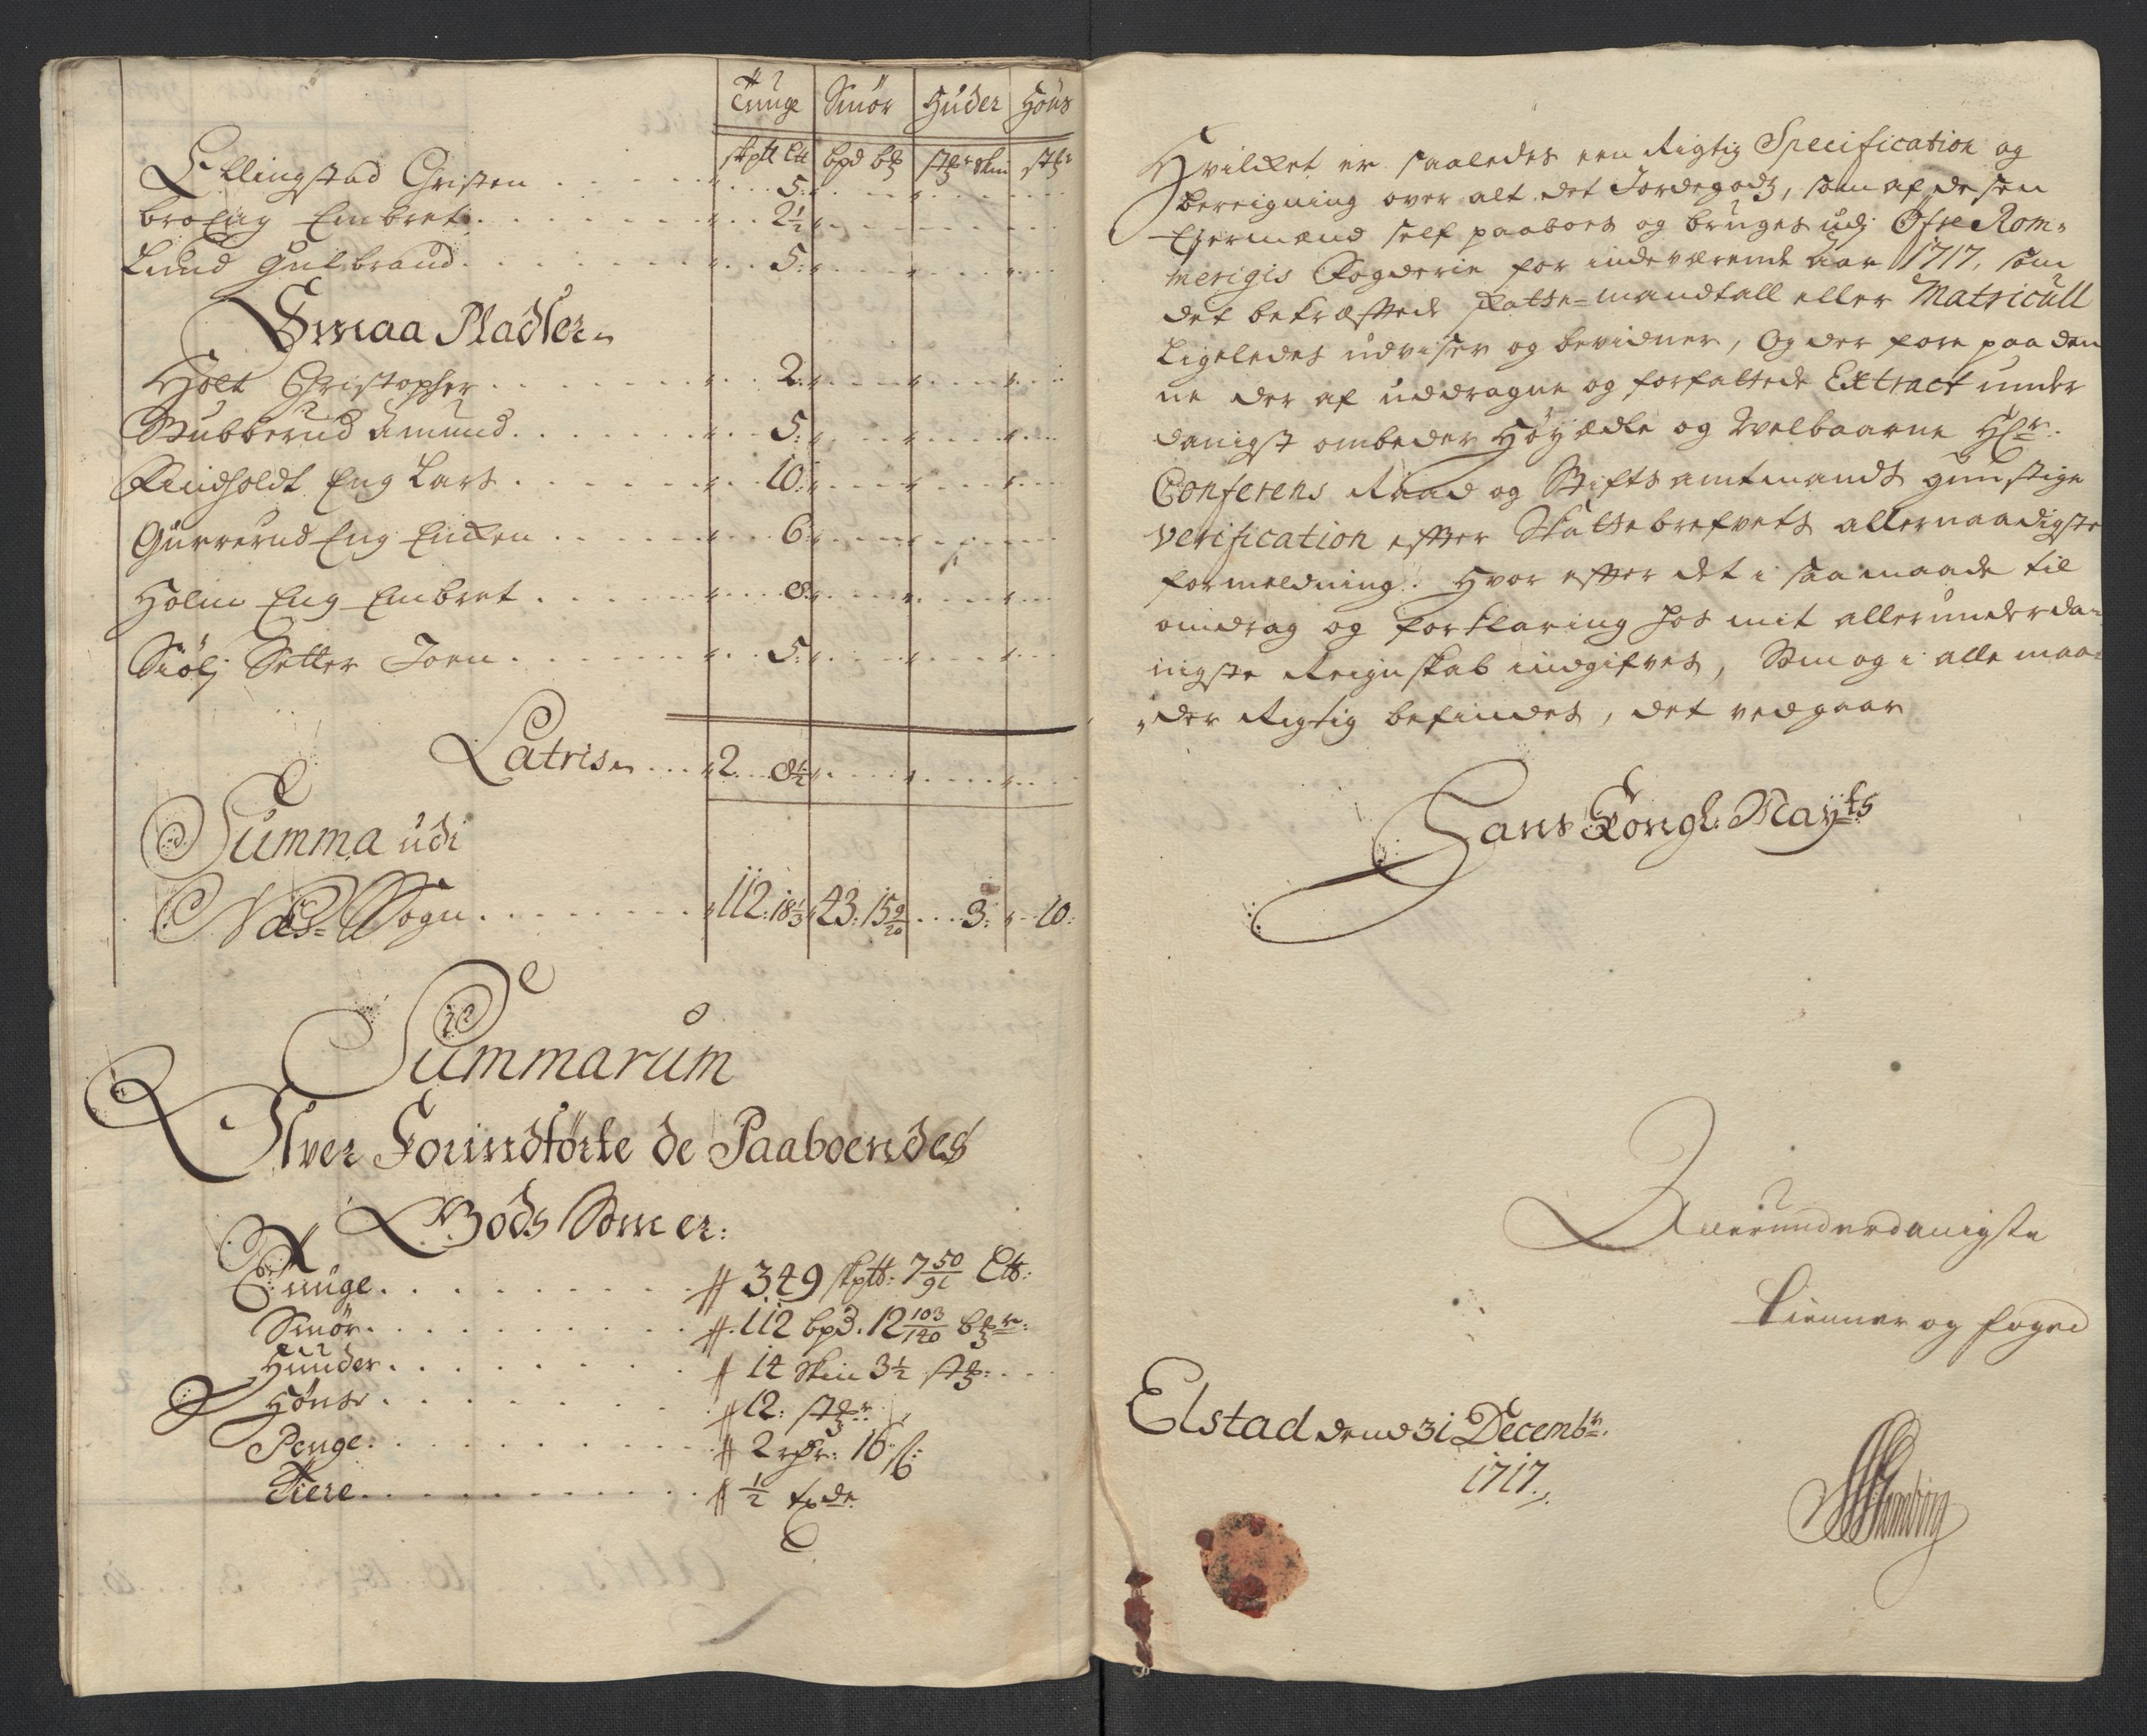 Tunge Smör Huder Höns
skptt Ltt bpd btz stz skin stz
Ellingstad Christen . . . . . 5:
broEng Embret . . . . . 2½
Lund Gulbrand . . . . . 5:
Smaa Pladtzer
Holt Christopher . . . . . 2:
Stubberud Amund . . . . . 5:
Findholdt Eng Lars . . . . . 10:
Gurrerud Eng . . . . . 6:
Holm Eng Embret . . . . . 8:
Siöli Setter Joen . . . . . 5:
Latris . . . 2 . . 8½
Summa udi
Næs Sogn . . . . . 112: 18⅓ 43: 15 9/20 . . . 3: . . 10:
Summarum
Over Forindförte de Paaboendes
Gods Som er:
Tunge . . . . . # 349 skptt: 7 50/91 Ltt:
Smör . . . . . # 112 bpd. 12 103/140 btzr:
Huuder . . . . . # 14 Skin 3½ stz:
Höns . . . . . # 12: stzr
Penge: . . . . . # 2 rdr: 16 s:
Tiere . . . . . # ½ tønde
Hvilket er saaledes een Rigtig Specification og
bereigning over alt det Jordegodz, som af de sen
Eyermænd self paaboes og bruges udj Öfre Rom=
merigis Fogderie for indeværende aar 1717, som
det bekræftede skatte=mandtall eller Matricull
Ligeledes udviser og bevidner, Og der fore paa den
ne der af uddragne og forfattede Extract under
danigst ombeder Höyædle og Welbaarne Hr:
Conferens Raad og Stifts amtmands gunstige
Verification effter Skattebrefvets allernaadigste
formeldning. Hvor effter det i saa maade til
omdrag og forklaring hos mit allerunderda=
nigste Reignskab indgifves, Som og i alle maa=
der Rigtig befindes, det vedgaar
Hans Kongl: Mayts
Allerunderdanigste
Tienner og foged
Elstad dend 31 Decembr:
1717